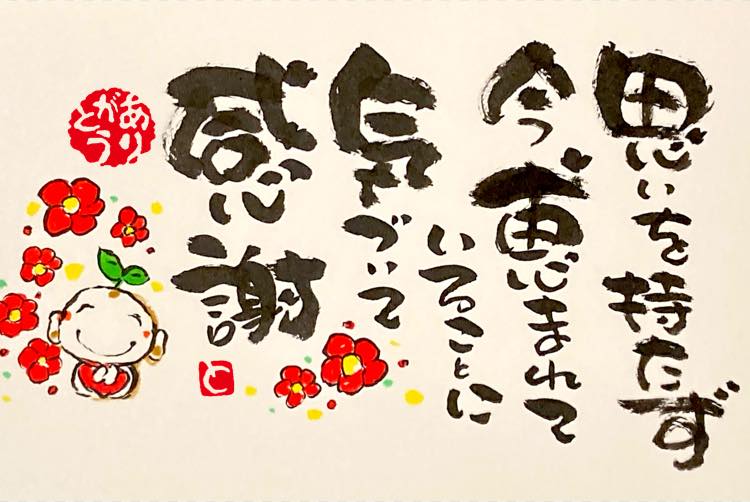 思いを持たず
今、恵まれて
いることに
気づいて
感謝
ありがとう